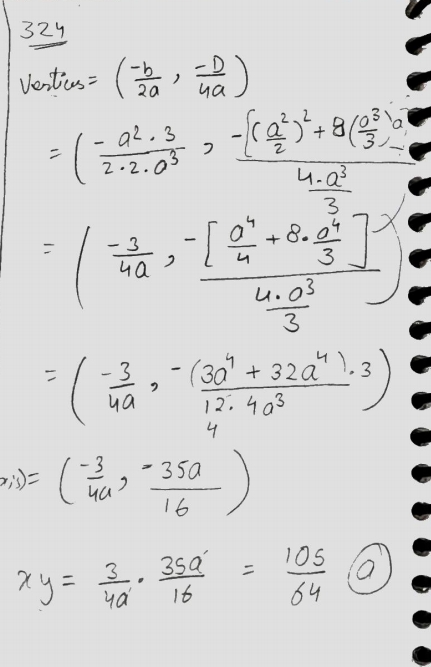 324
Vertius = (-b/2a, -D/4a)
= (-a² · 3 / 2 · 2 · a³, -[(a²/2)² + 8(a³/3)a] / (4 · a³/3))
= (-3/4a, -[a⁴/4 + 8 · a⁴/3] / (4 · a³/3))
= (-3/4a, -(3a⁴ + 32a⁴) · 3 / 12 · 4a³)
4
= (-3/4a, -35a/16)
xy = 3/4a · 35a/16 = 105/64 (a)